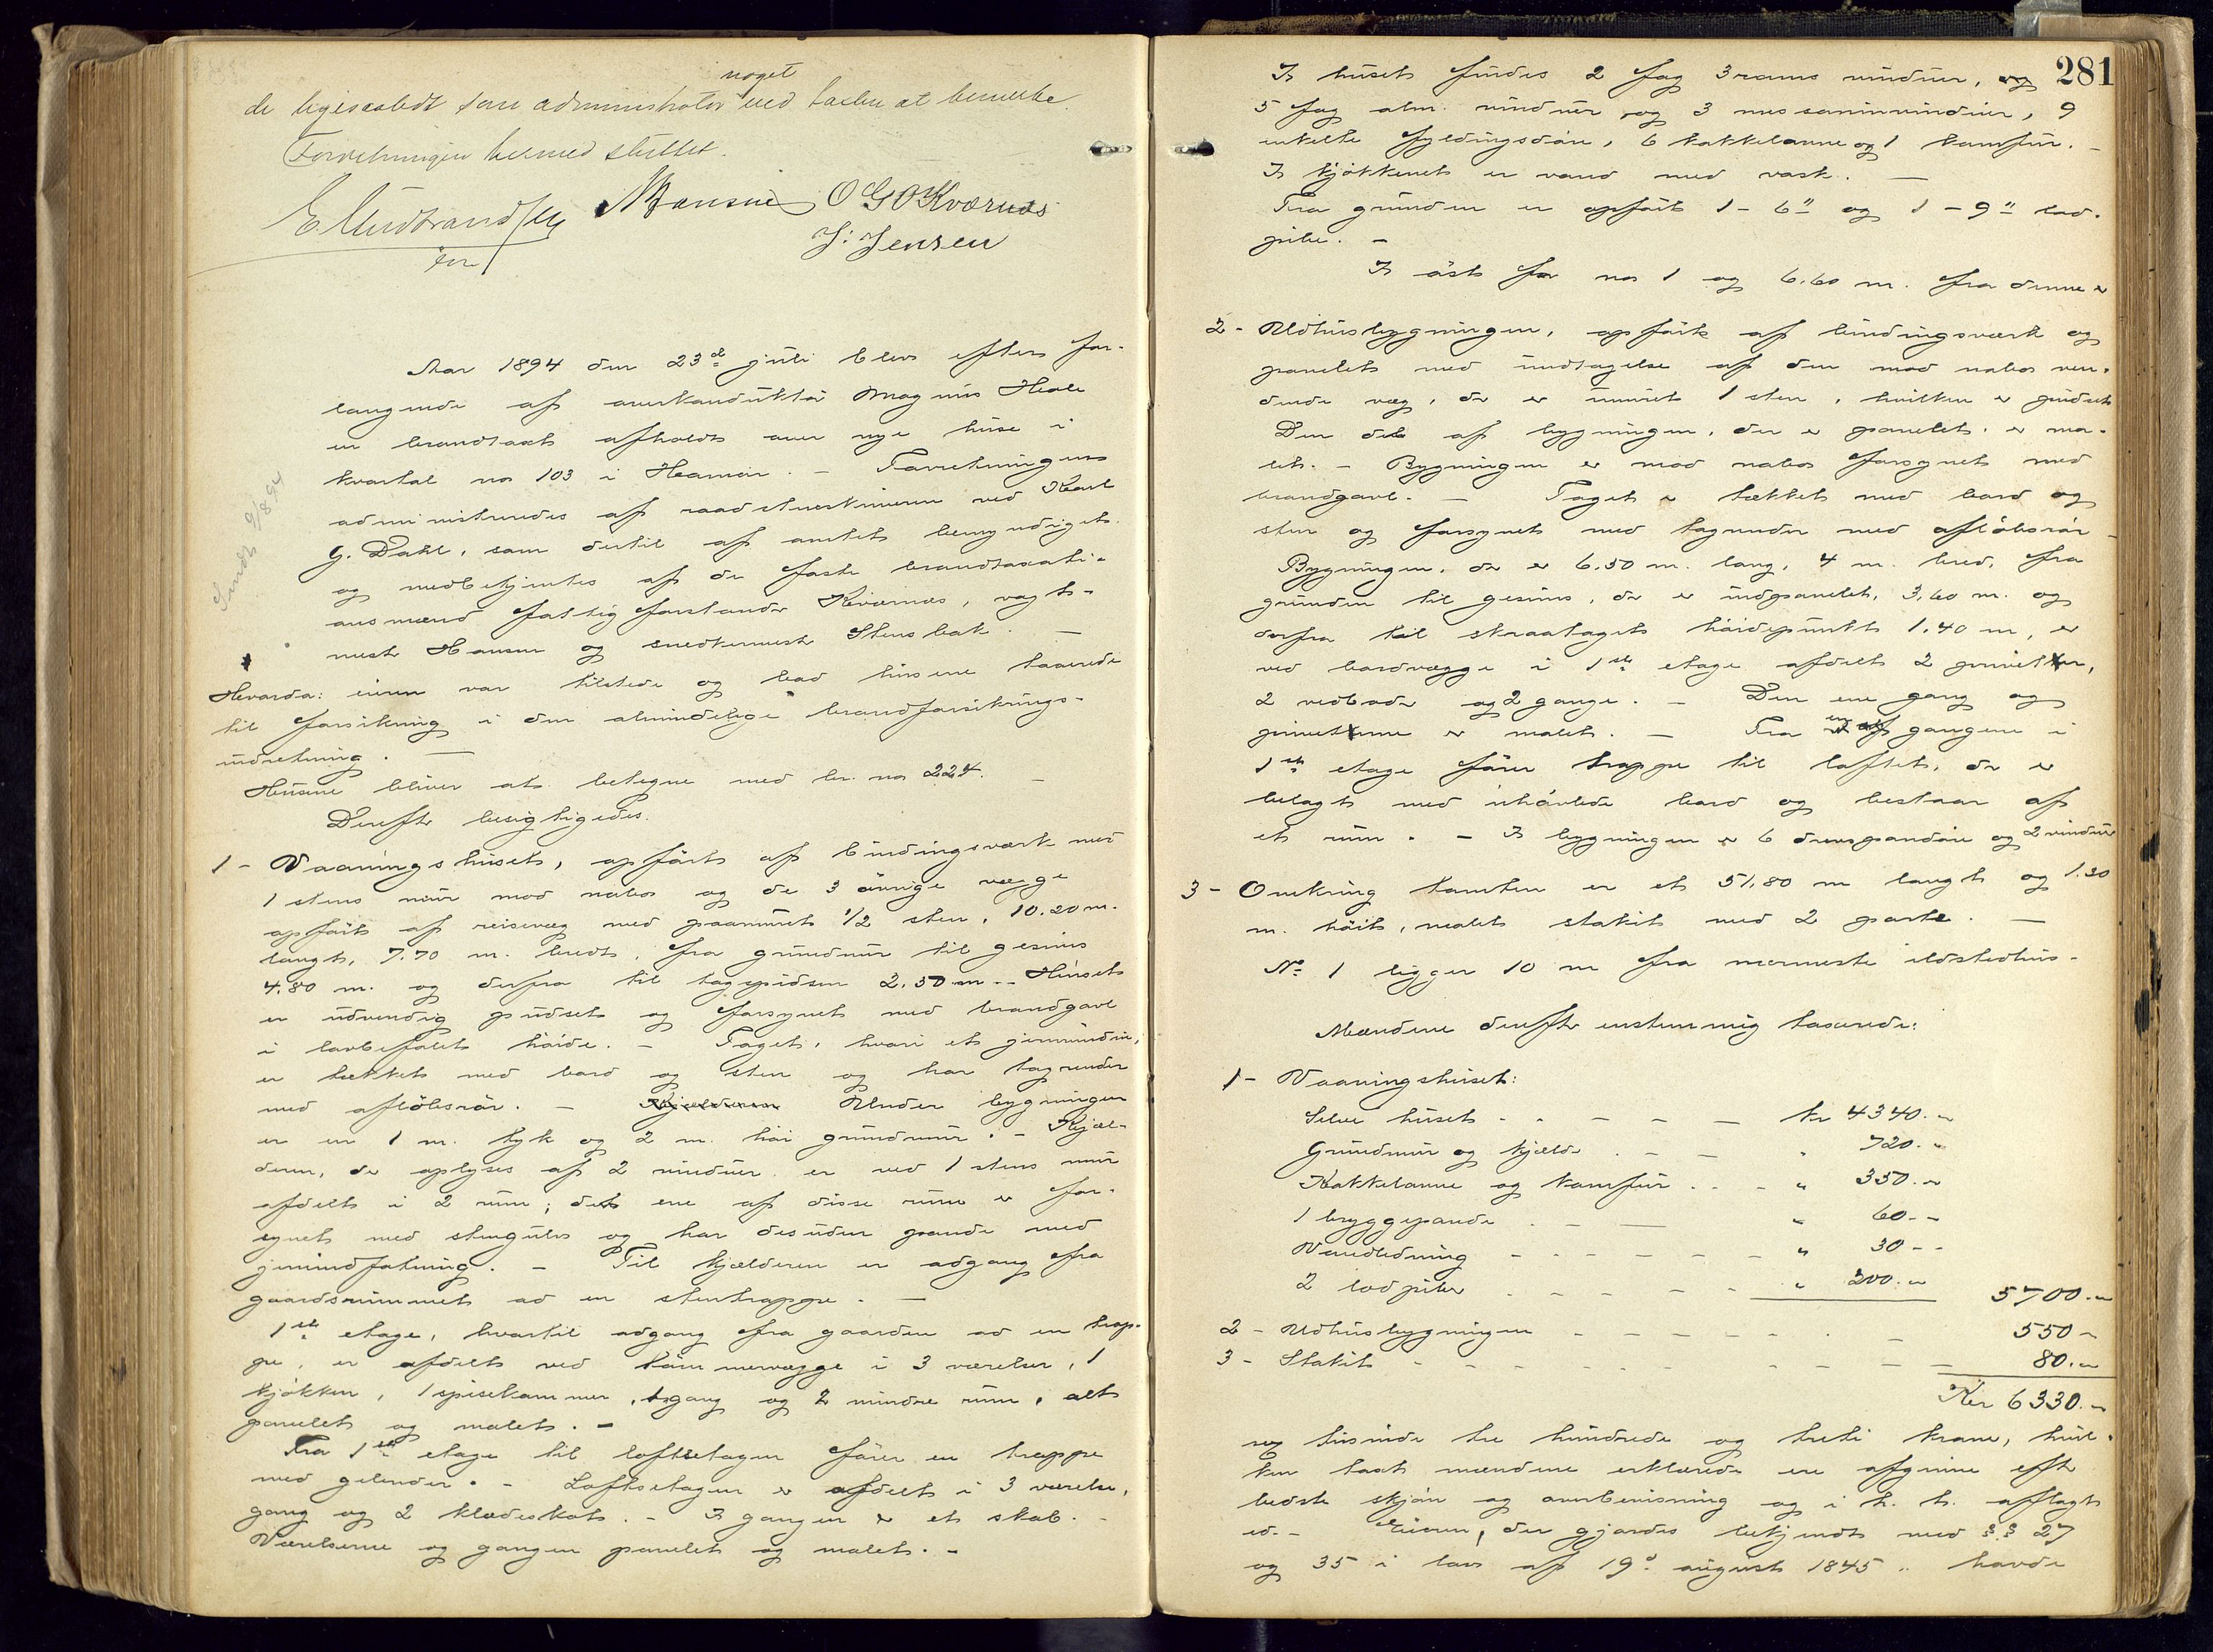 noget
de ligesaalidt som administrator ved taxten at bemerke.
Forretningen hermed sluttet.
M Hansen O G O Kværnæs
J. Jensen
Aar 1894 den 23de juli blev efter for-
langende af overkonduktør Magnus Hvale
en brandtaxt afholdt over nye huse i
kvartal no 103 i Hamar. - Forretningen
administreredes af raadstueskriveren ved Karl
G. Dahl, som dertil af amtet bemyndiget
og medbetjentes af de faste brandtaxati-
onsmænd fattigforstander Kværnæs, vagt-
mester Hansen og snedkermester Stensbak. -
Sendt 9/8 94
Hvorda: eieren var tilstede og bad husene taxerede
til forsikring i den almindelige brandforsikrings-
indretning. -
Husene bliver at betegne med br. no 224. -
Derefter besigtigedes.
1 - Vaaningshuset, opført af bindingsværk med
1 stens mur mod nabo og de 3 øvrige vægge
opført af reisevæg med paamuret 1/2 sten, 10.20 m.
langt, 7.70 m. bredt, fra grundmur til gesims
4.80 m. og derfra til tagspidsen 2.50 m. - Huset
er udvendig pudset og forsynet med brandgavl
i lovbefalet høide. - Taget, hvori et jernvindu,
er tækket med bord og sten og har tagrender
med afløbsrør. - Kjelderen Under bygningen
er en 1 m. tyk og 2 m. høi grundmur. - Kjæl-
deren, der oplyses af 2 vinduer er ved 1 stens mur
afdelt i 2 rum; det ene af disse rum er for-
synet med stengulv og har desuden pande med
jernindfatning. - Til kjælderen er adgang fra
gaardsrummet ad en stentrappe. -
1ste etage, hvortil adgang fra gaarden ad en trap-
pe, er afdelt ved tømmervægge i 3 værelser, 1
kjøkken, 1 spisekammer, 1 gang og 2 mindre rum, alt
panelet og malet. -
Fra 1ste etage til loftsetagen fører en trappe
med gelender. - Loftsetagen er afdelt i 3 værelse,
gang og 2 klædeskot. - I gangen er et skab. -
Værelserne og gangen panelet og malet. -
281
I huset findes 2 fag 3rams vinduer, og
5 fag alm. vinduer og 3 messaninvinduer, 9
enkelte fyldingsdøre, 6 kakkelovne og 1 komfur. -
I kjøkkenet er vand med vask. -
Fra grunden er opført 1 - 6" og 1 - 9" lod-
pibe. -
I øst for no 1 og 6.60 m. fra denne er
2 - Udhusbygningen, opført af bindingsværk og
panelet med undtagelse af den mod nabo ven-
dende væg, der er muret 1 sten, hvilken er pudset
Den del af bygningen, der er panelet, er ma-
let. - Bygningen er mod nabo forsynet med
brandgavl. - Taget er tækket med bord og
sten og forsynet med tagrender med afløbsrør -
Bygningen, der er 6.50 m. lang, 4 m. bred, fra
grunden til gesims, der er indpanelet, 3.60 m. og
derfra til skraatagets høidepunkt 1.40 m, er
ved bordvægge i 1ste etage afdelt 2 priveter,
2 vedboder og 2 gange. - Den ene gang og
priveterne er malet. - Fra en af gangene i
1ste etage fører trappe til loftet, der er
belagt med uhøvlede bord og bestaar af
et rum. - I bygningen er 6 døre og 2 vinduer
3 - Omkring tomten er et 51.80 m langt og 1.30
m. høit, malet stakit med 2 porte. -
No 1 ligger 10 m fra nærmeste ildstedhus -
Mændene derefter enstemmig taxerede:
1 - Vaaningshuset:
Selve huset - - - - - kr 4340. -
Grundmur og kjælder . - - " 720. -
Kakkelovne og komfur . . - " 350. -
1 bryggepande . - - " 60. -
Vandledning - - - - - - " 30 - -
2 lodpiber - - - - - " 200. - 5700. -
2 - Udhusbygningen - - - - - - - 550 -
3 - Stakit - - - - - - - - - 80. -
Kr 6330. -
sex tusinde tre hundrede og treti krone, hvil-
ken taxt mændene erklærede ere afgivne efter
bedste skjøn og overbevisning og i h. t. aflagt
ed. - Eieren, der gjordes bekjendt med §§ 27
og 35 i lov af 19de august 1845, havde